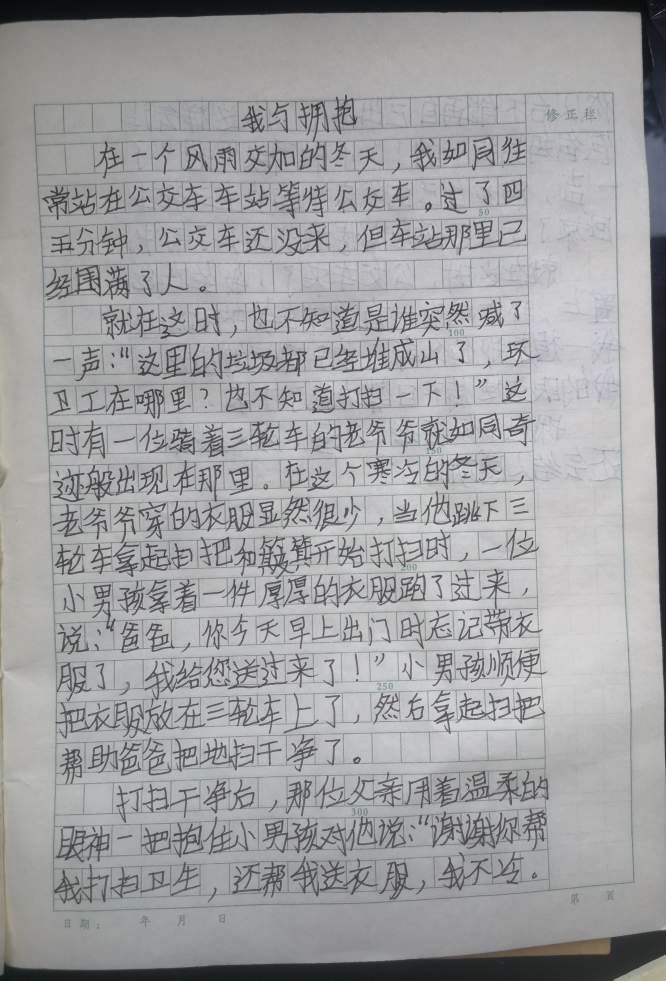 我与拥抱
修正栏
在一个风雨交加的冬天，我如同往
常站在公交车车站等待公交车。过了四
50
五分钟，公交车还没来，但车站那里已
经围满了人。
就在这时，也不知道是谁突然喊了
100
一声：“这里的垃圾都已经堆成山了，环
卫工在哪里？也不知道打扫一下！”这
时有一位骑着三轮车的老爷爷就如同奇
150
迹般出现在那里。在这个寒冷的冬天，
老爷爷穿的衣服显然很少，当他跳下三
轮车拿起扫把和簸箕开始打扫时，一位
200
小男孩拿着一件厚厚的衣服跑了过来，
说：“爸爸，你今天早上出门时忘记带衣
服了，我给您送过来了！”小男孩顺便
250
把衣服放在三轮车上了，然后拿起扫把
帮助爸爸把地扫干净了。
打扫干净后，那位父亲用着温柔的
300
眼神一把抱住小男孩对他说：“谢谢你帮
我打扫卫生，还帮我送衣服，我不冷。
日期： 年 月 日
第 页